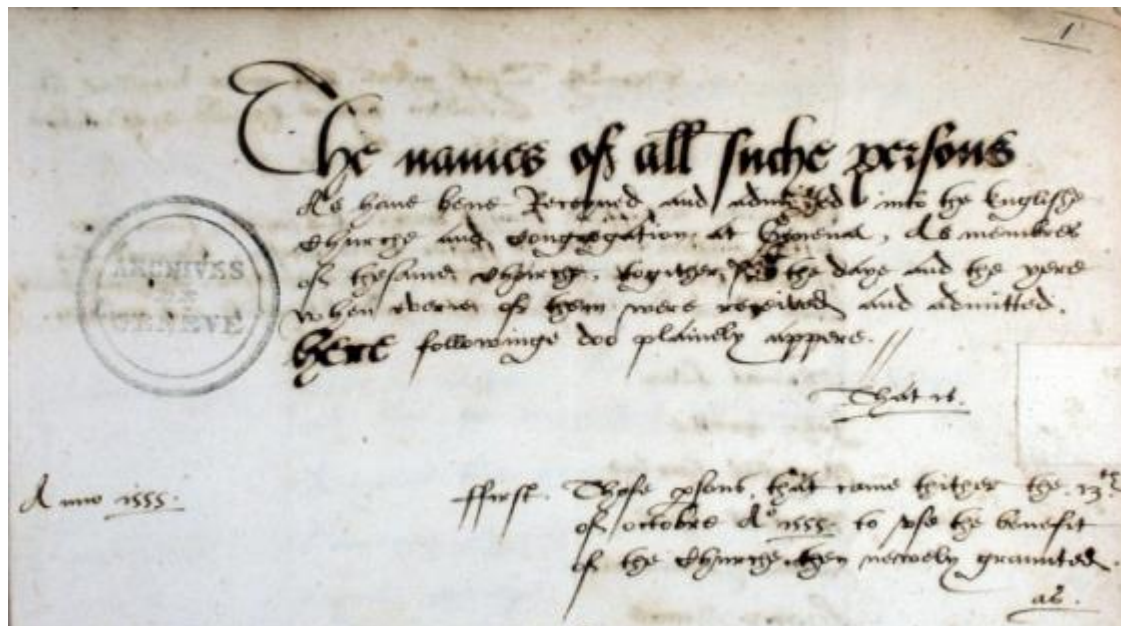 1
The names of all suche persons
As haue bene Receyued and admitted into the Englishe
Churche and Congregation at Geneua, As membres
of thesame Churche. together, the daye and the yere
when euerie of them were receiued and admitted.
HERE followinge doo plainely appere.//
That is.
ARCHIVES
DE
GENÈVE
Anno 1555.
ffirst. Those psons, that came thither the .13th
of octobre Ao 1555. to vse the benefit
of the Churche then newely graunted.
as.